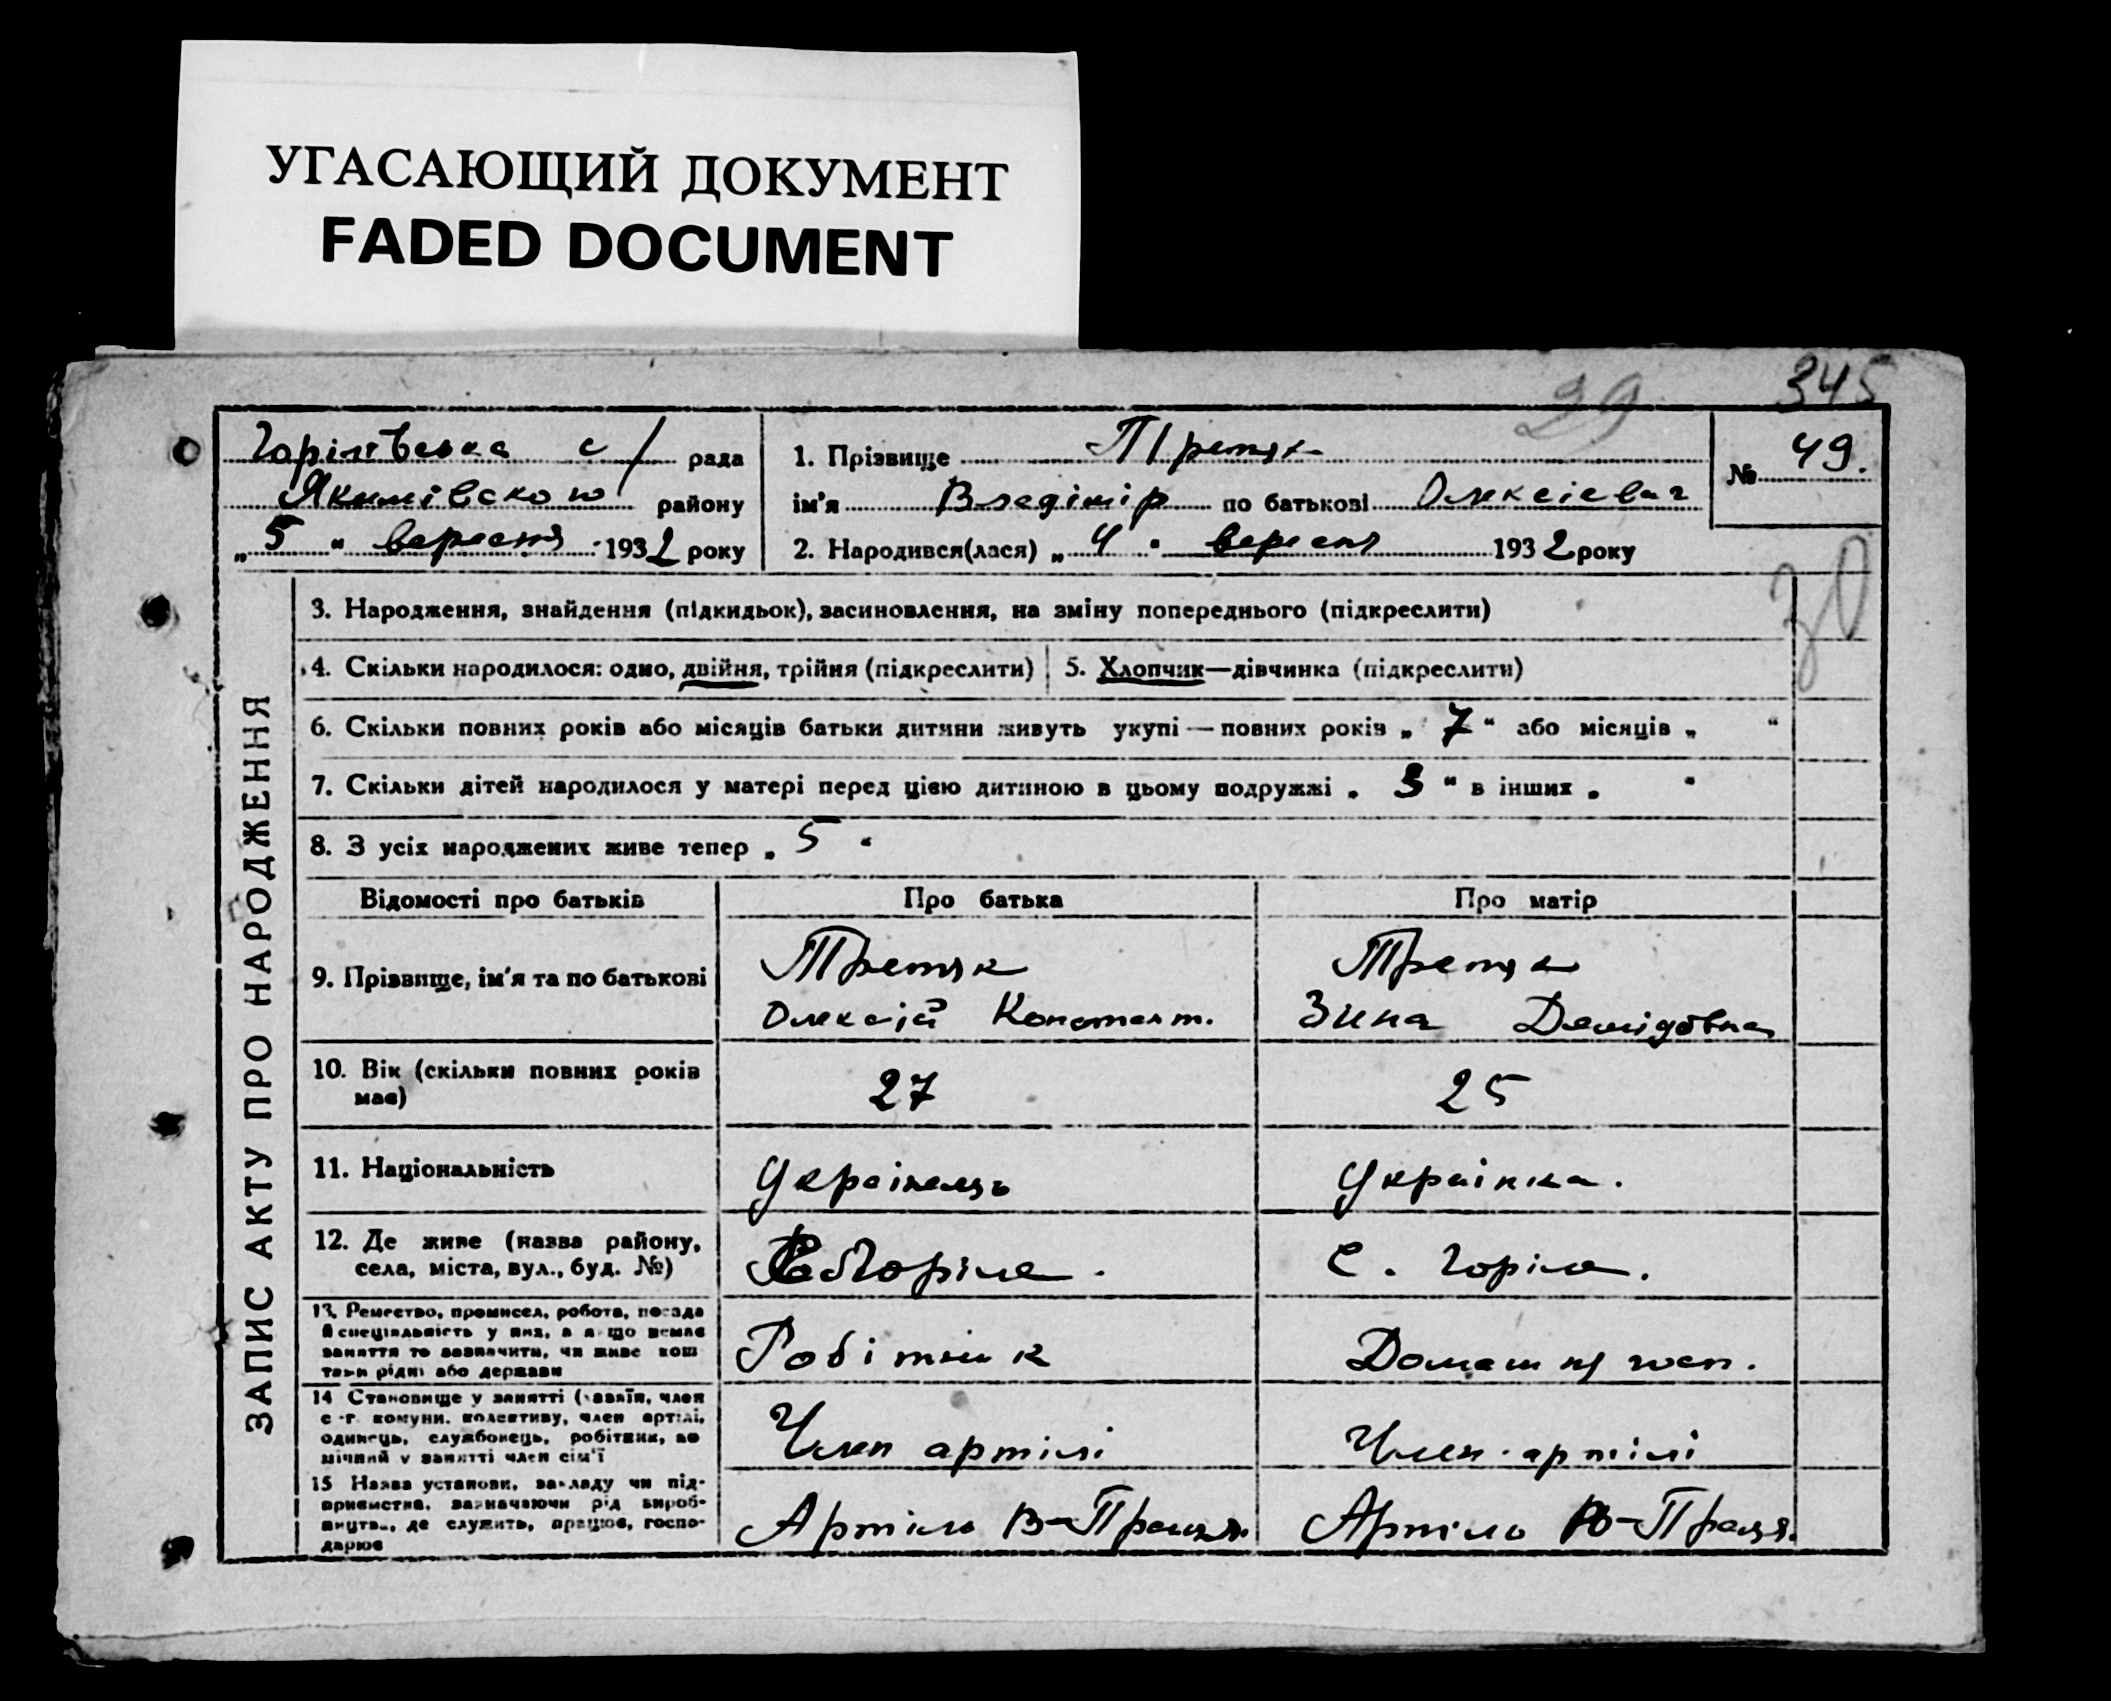 УГАСАЮЩИЙ ДОКУМЕНТ
FADED DOCUMENT
29 345
Горілівська с/ рада
Якимівсько ю району
„ 5 " вересня 1932 року
1. Прізвище Претяк
ім'я Владімір по батькові Олексієвич
2. Народився(лася) „ 4 " вересня 1932 року
№ 49.
30
ЗАПИС АКТУ ПРО НАРОДЖЕННЯ
3. Народження, знайдення (підкидьок), засиновлення, на зміну попереднього (підкреслити)
4. Скільки народилося: одно, двійня, трійня (підкреслити)
5. Хлопчик—дівчинка (підкреслити)
6. Скільки повних років або місяців батьки дитини живуть укупі — повних років „ 7 " або місяців „ "
7. Скільки дітей народилося у матері перед цією дитиною в цьому подружжі „ 3 " в інших „ "
8. З усіх народжених живе тепер „ 5 "
Відомості про батьків Про батька Про матір
9. Прізвище, ім'я та по батькові
Третяк
Олексій Констант.
Третяк
Зина Демідовна
10. Вік (скільки повних років
має)
27 25
11. Національність
Українець Українка.
12. Де живе (назва району,
села, міста, вул., буд. №)
Горіла. С. Горіла.
13. Ремество, промисел, робота, посада
й спеціяльність у них, а якщо немає
заняття то зазначити, чи живе кош
тами рідні або держави
Робітник Домашня госп.
14 Становище у занятті (хазяїн, член
с.-г. комуни, колективу, член артілі,
одинець, службовець, робітник, по
мічний у занятті член сім'ї
Член артілі Член артілі
15 Назва установи, закладу чи під-
приємства, зазначаючи рід вироб-
ництва, де служить, працює, госпо-
дарює
Артіль В-Праця. Артіль В-Праця.